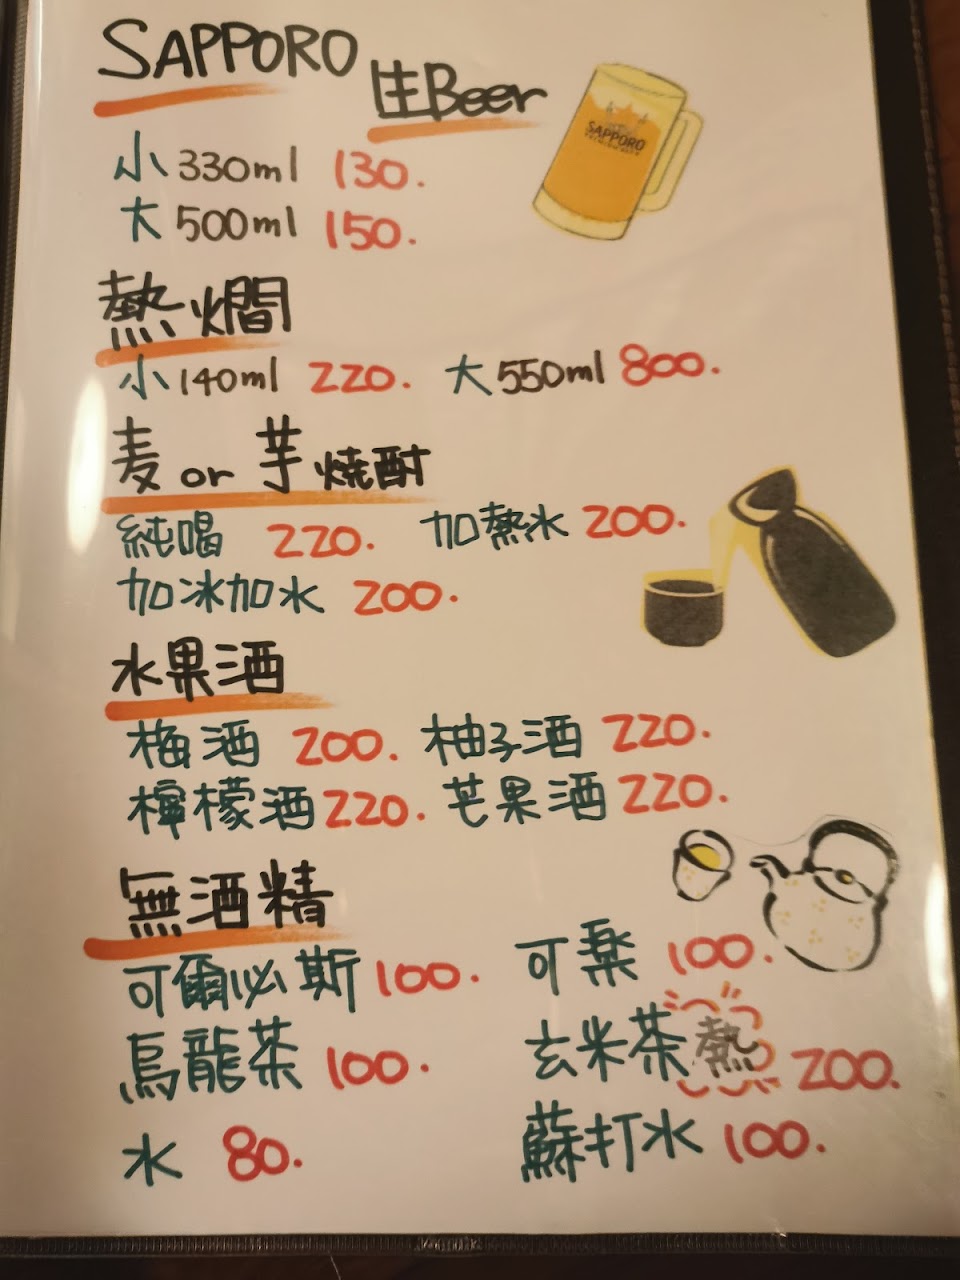 SAPPORO 生Beer
SAPPORO
小 330ml 130.
大 500ml 150.
熱燗
小 140ml 220. 大 550ml 800.
麦 or 芋 焼酎
純喝 220. 加熱水 200.
加冰加水 200.
水果酒
梅酒 200. 柚子酒 220.
檸檬酒 220. 芒果酒 220.
無酒精
可爾必斯 100. 可樂 100.
烏龍茶 100. 玄米茶 熱 200.
水 80. 蘇打水 100.